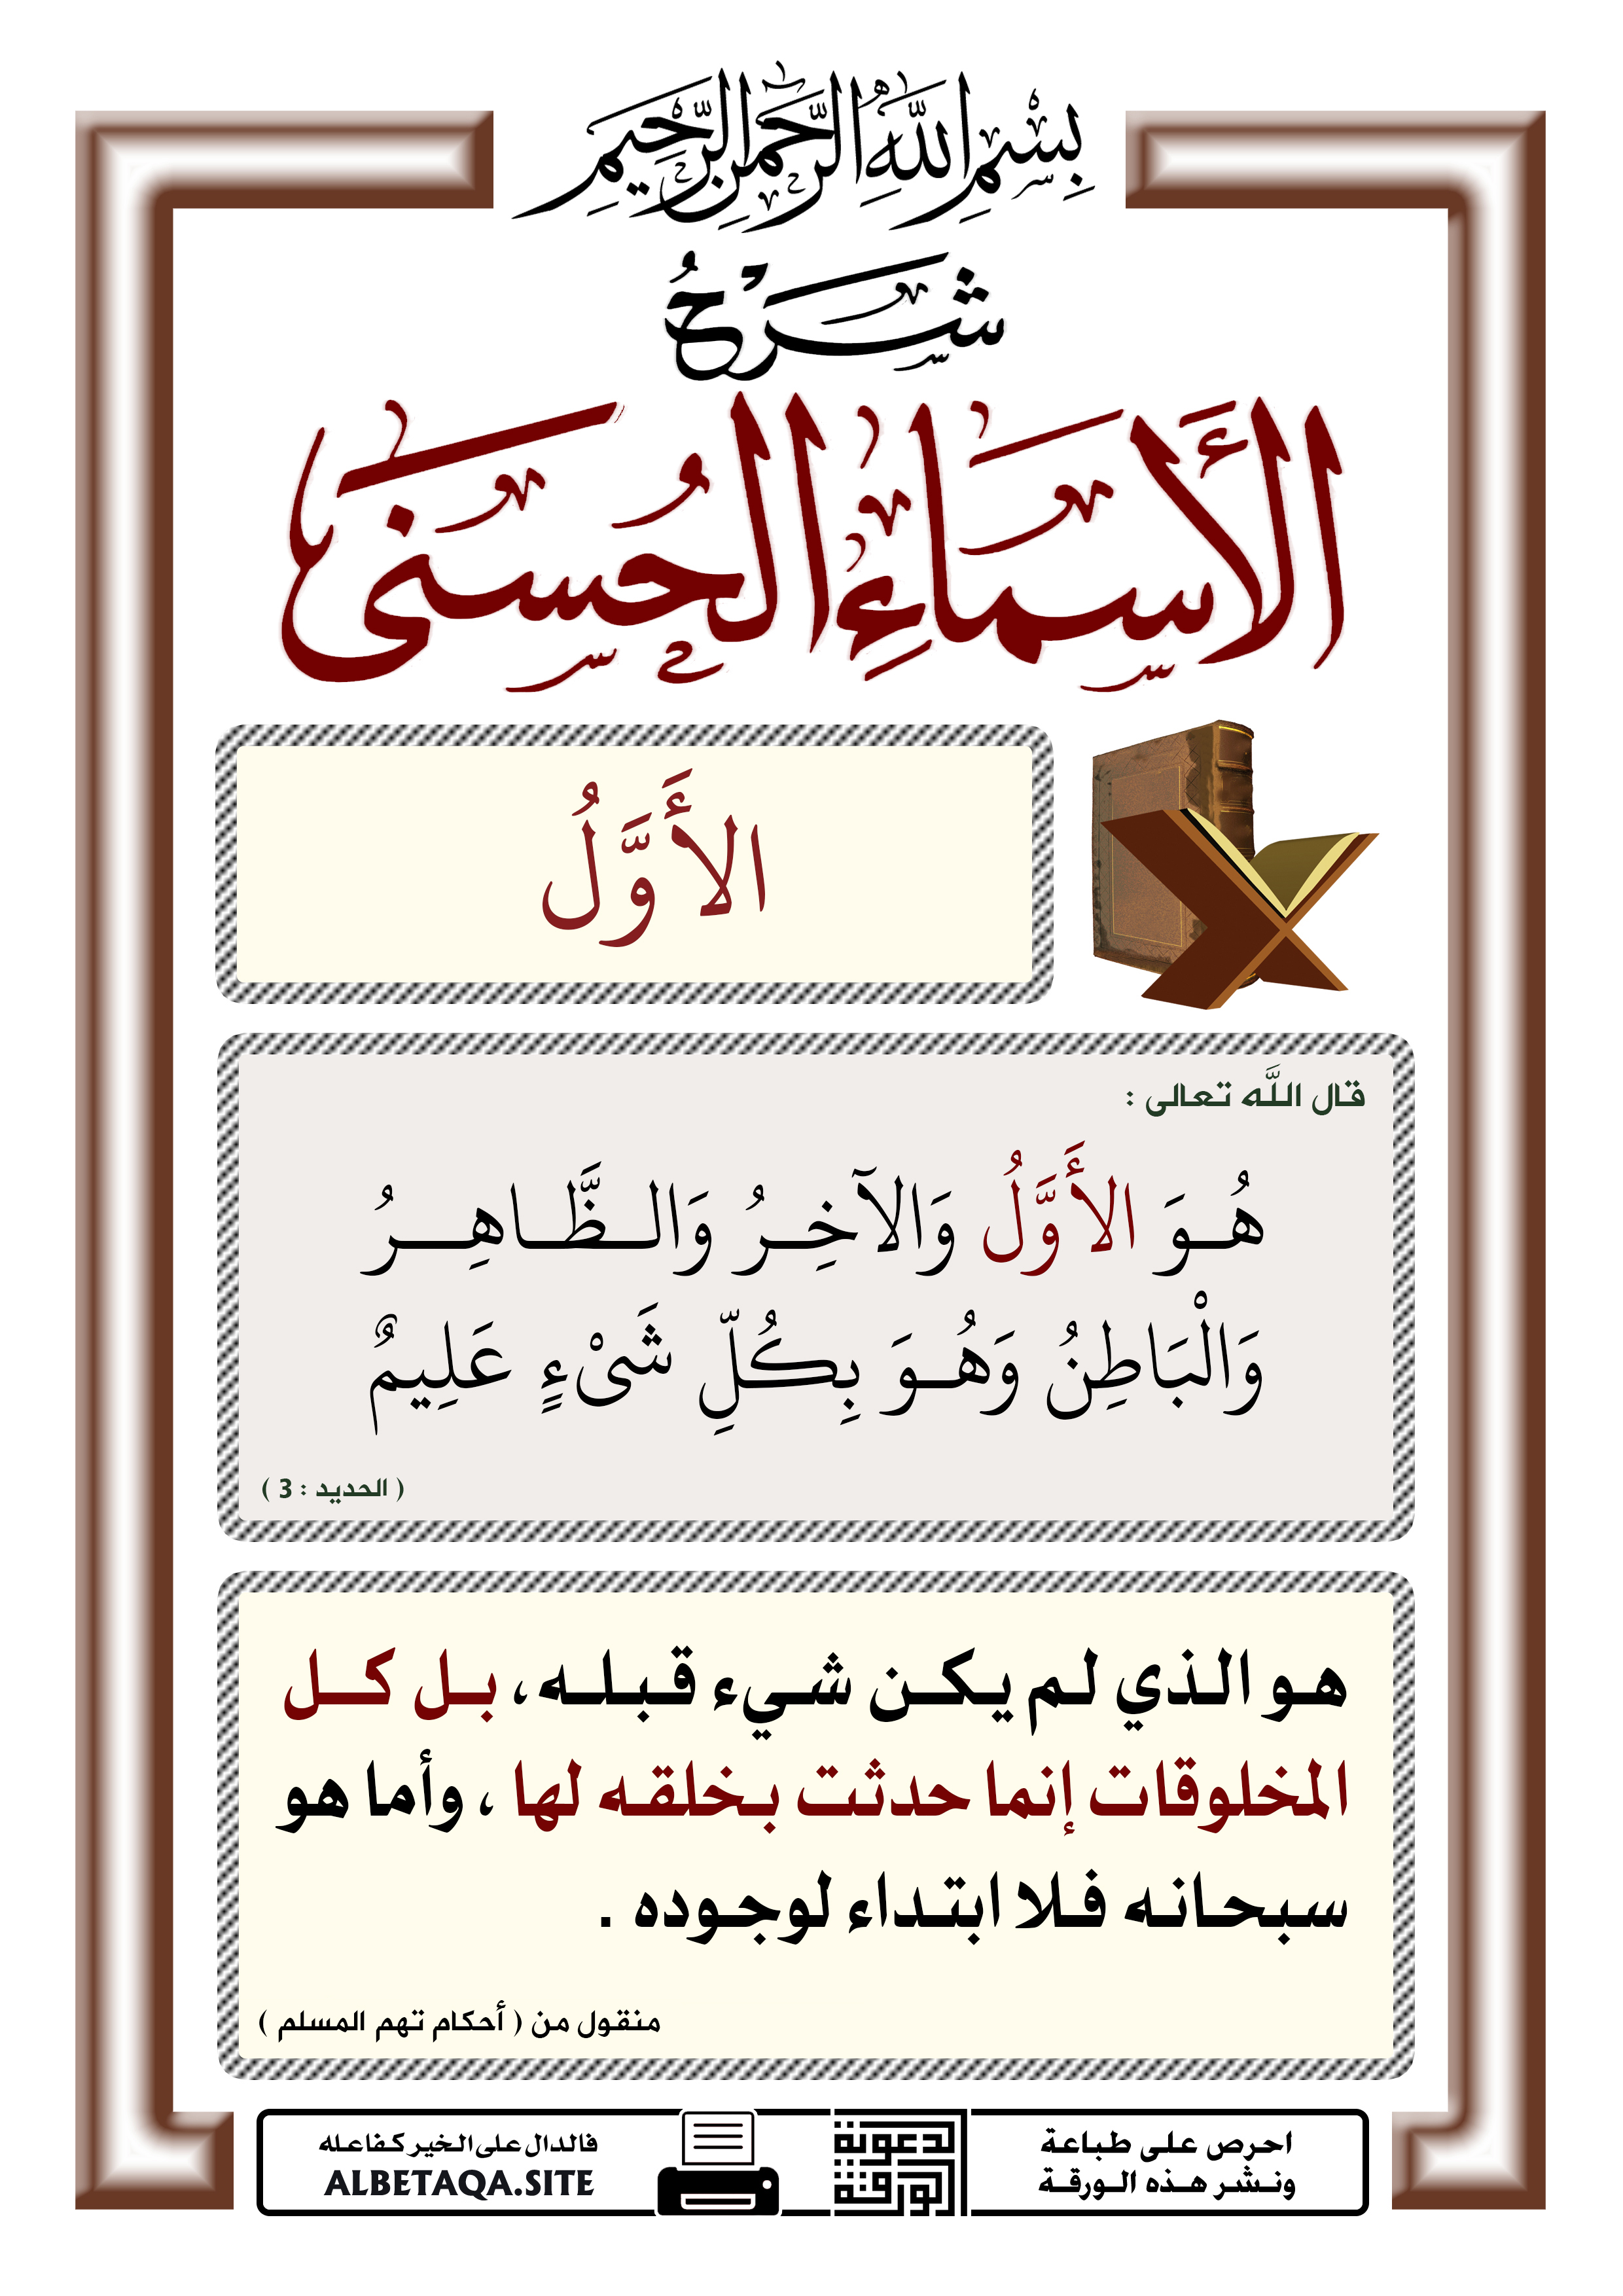 بِسْمِ اللَّهِ الرَّحْمَنِ الرَّحِيمِ
شَرْحُ
الأَسْمَاءِ الْحُسْنَى
الأَوَّلُ
قال اللَّه تعالى :
هُوَ الأَوَّلُ وَالآخِرُ وَالظَّاهِرُ
وَالْبَاطِنُ وَهُوَ بِكُلِّ شَيْءٍ عَلِيمٌ
( الحديد : 3 )
هو الذي لم يكن شيء قبله، بل كل
المخلوقات إنما حدثت بخلقه لها ، وأما هو
سبحانه فلا ابتداء لوجوده .
منقول من ( أحكام تهم المسلم )
احرص على طباعة
ونشر هذه الورقة
الورقة
الدعوية
فالدال على الخير كفاعله
ALBETAQA.SITE